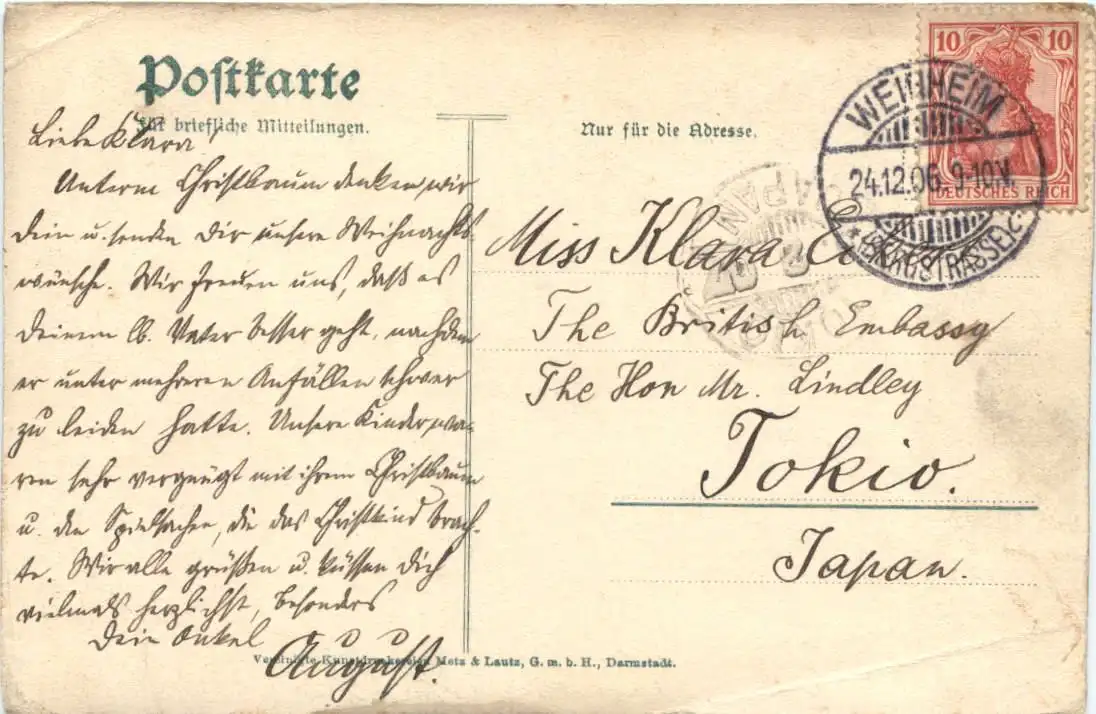 Postkarte
Für briefliche Mitteilungen.
Nur für die Adresse.
Liebe Klara!
Unterm Christbaum denken wir
Dein u. senden Dir unsere Weihnachts-
wünsche. Wir freuen uns, daß es
Deinem lb. Vater besser geht, nachdem
er unter mehreren Anfällen schwer
zu leiden hatte. Unsere Kinder wa-
ren sehr vergnügt mit ihrem Christbaum
u. den Spielsachen, die das Christkind brach-
te. Wir alle grüßen u. küssen Dich
vielmals herzlichst, besonders
Dein Onkel
August.
Miss Klara
The British Embassy
The Hon Mr. Lindley
Tokio.
Japan.
10 10
DEUTSCHES REICH
WEINHEIM
24.12.06. 9-10V.
JAPAN
Vereinigte Kunstdruckereien Metz & Lautz, G. m. b. H., Darmstadt.